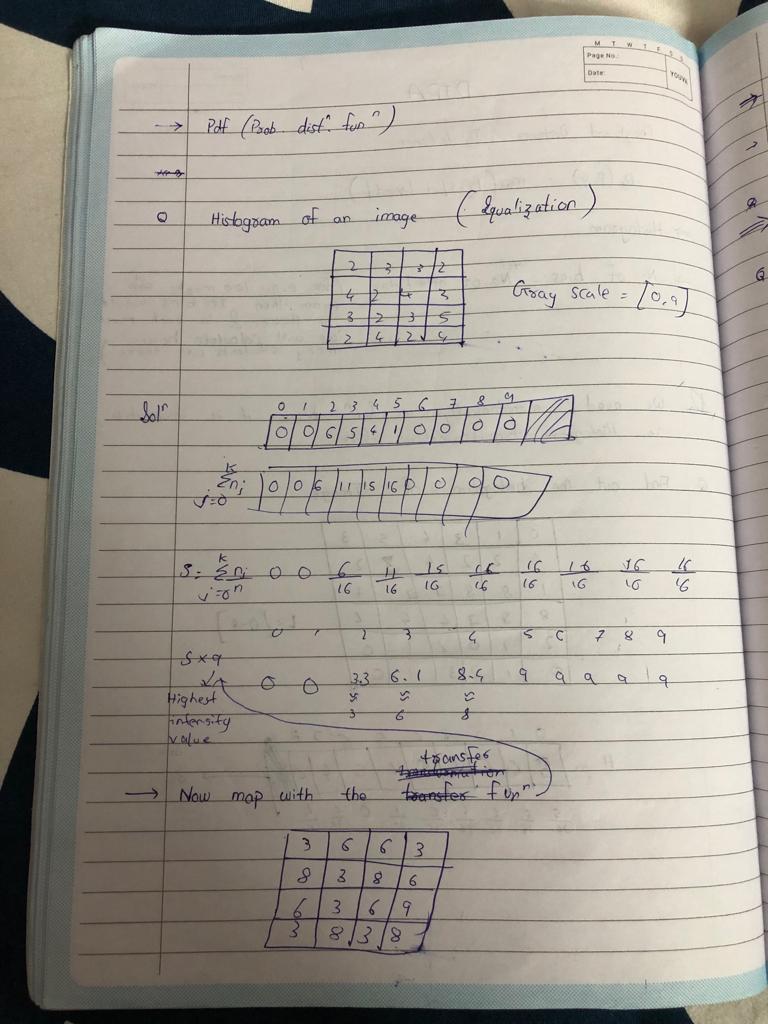 M T W T F S S
Page No.:
Date:
YOUVA
→ Pdf (Prob. distⁿ. funⁿ)
○ Histogram of an image (Equalization)
2 3 3 2
4 2 4 3
3 2 3 5
2 4 2 4
Gray scale = [0,9]
Solⁿ
0 1 2 3 4 5 6 7 8 9
0 0 6 5 4 1 0 0 0 0
k Σ nj j=0 0 0 6 11 15 16 0 0 0 0
S = k Σ nj/n j=0 0 0 6/16 11/16 15/16 16/16 16/16 16/16 16/16 16/16
0 1 2 3 4 5 6 7 8 9
S×9
0 0 3.3 6.1 8.4 9 9 9 9 9
≈ ≈ ≈
3 6 8
Highest
intensity
value
transfer
→ Now map with the transfer funⁿ
3 6 6 3
8 3 8 6
6 3 6 9
3 8 3 8